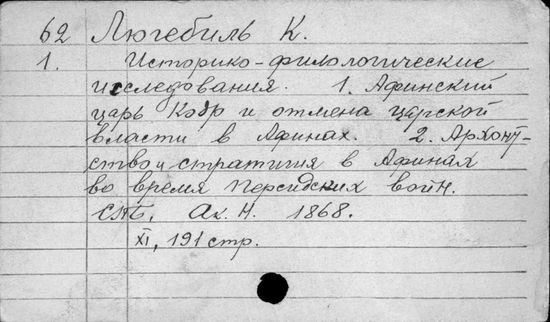 62 Люгебиль К.
1. Историко-филологические
исследования. 1. Афинский
царь Кодр и отмена царской
власти в Афинах. 2. Архонт-
ство и стратигия в Афинах
во время персидских войн.
СПБ, Ак. Н. 1868.
XI, 191 стр.